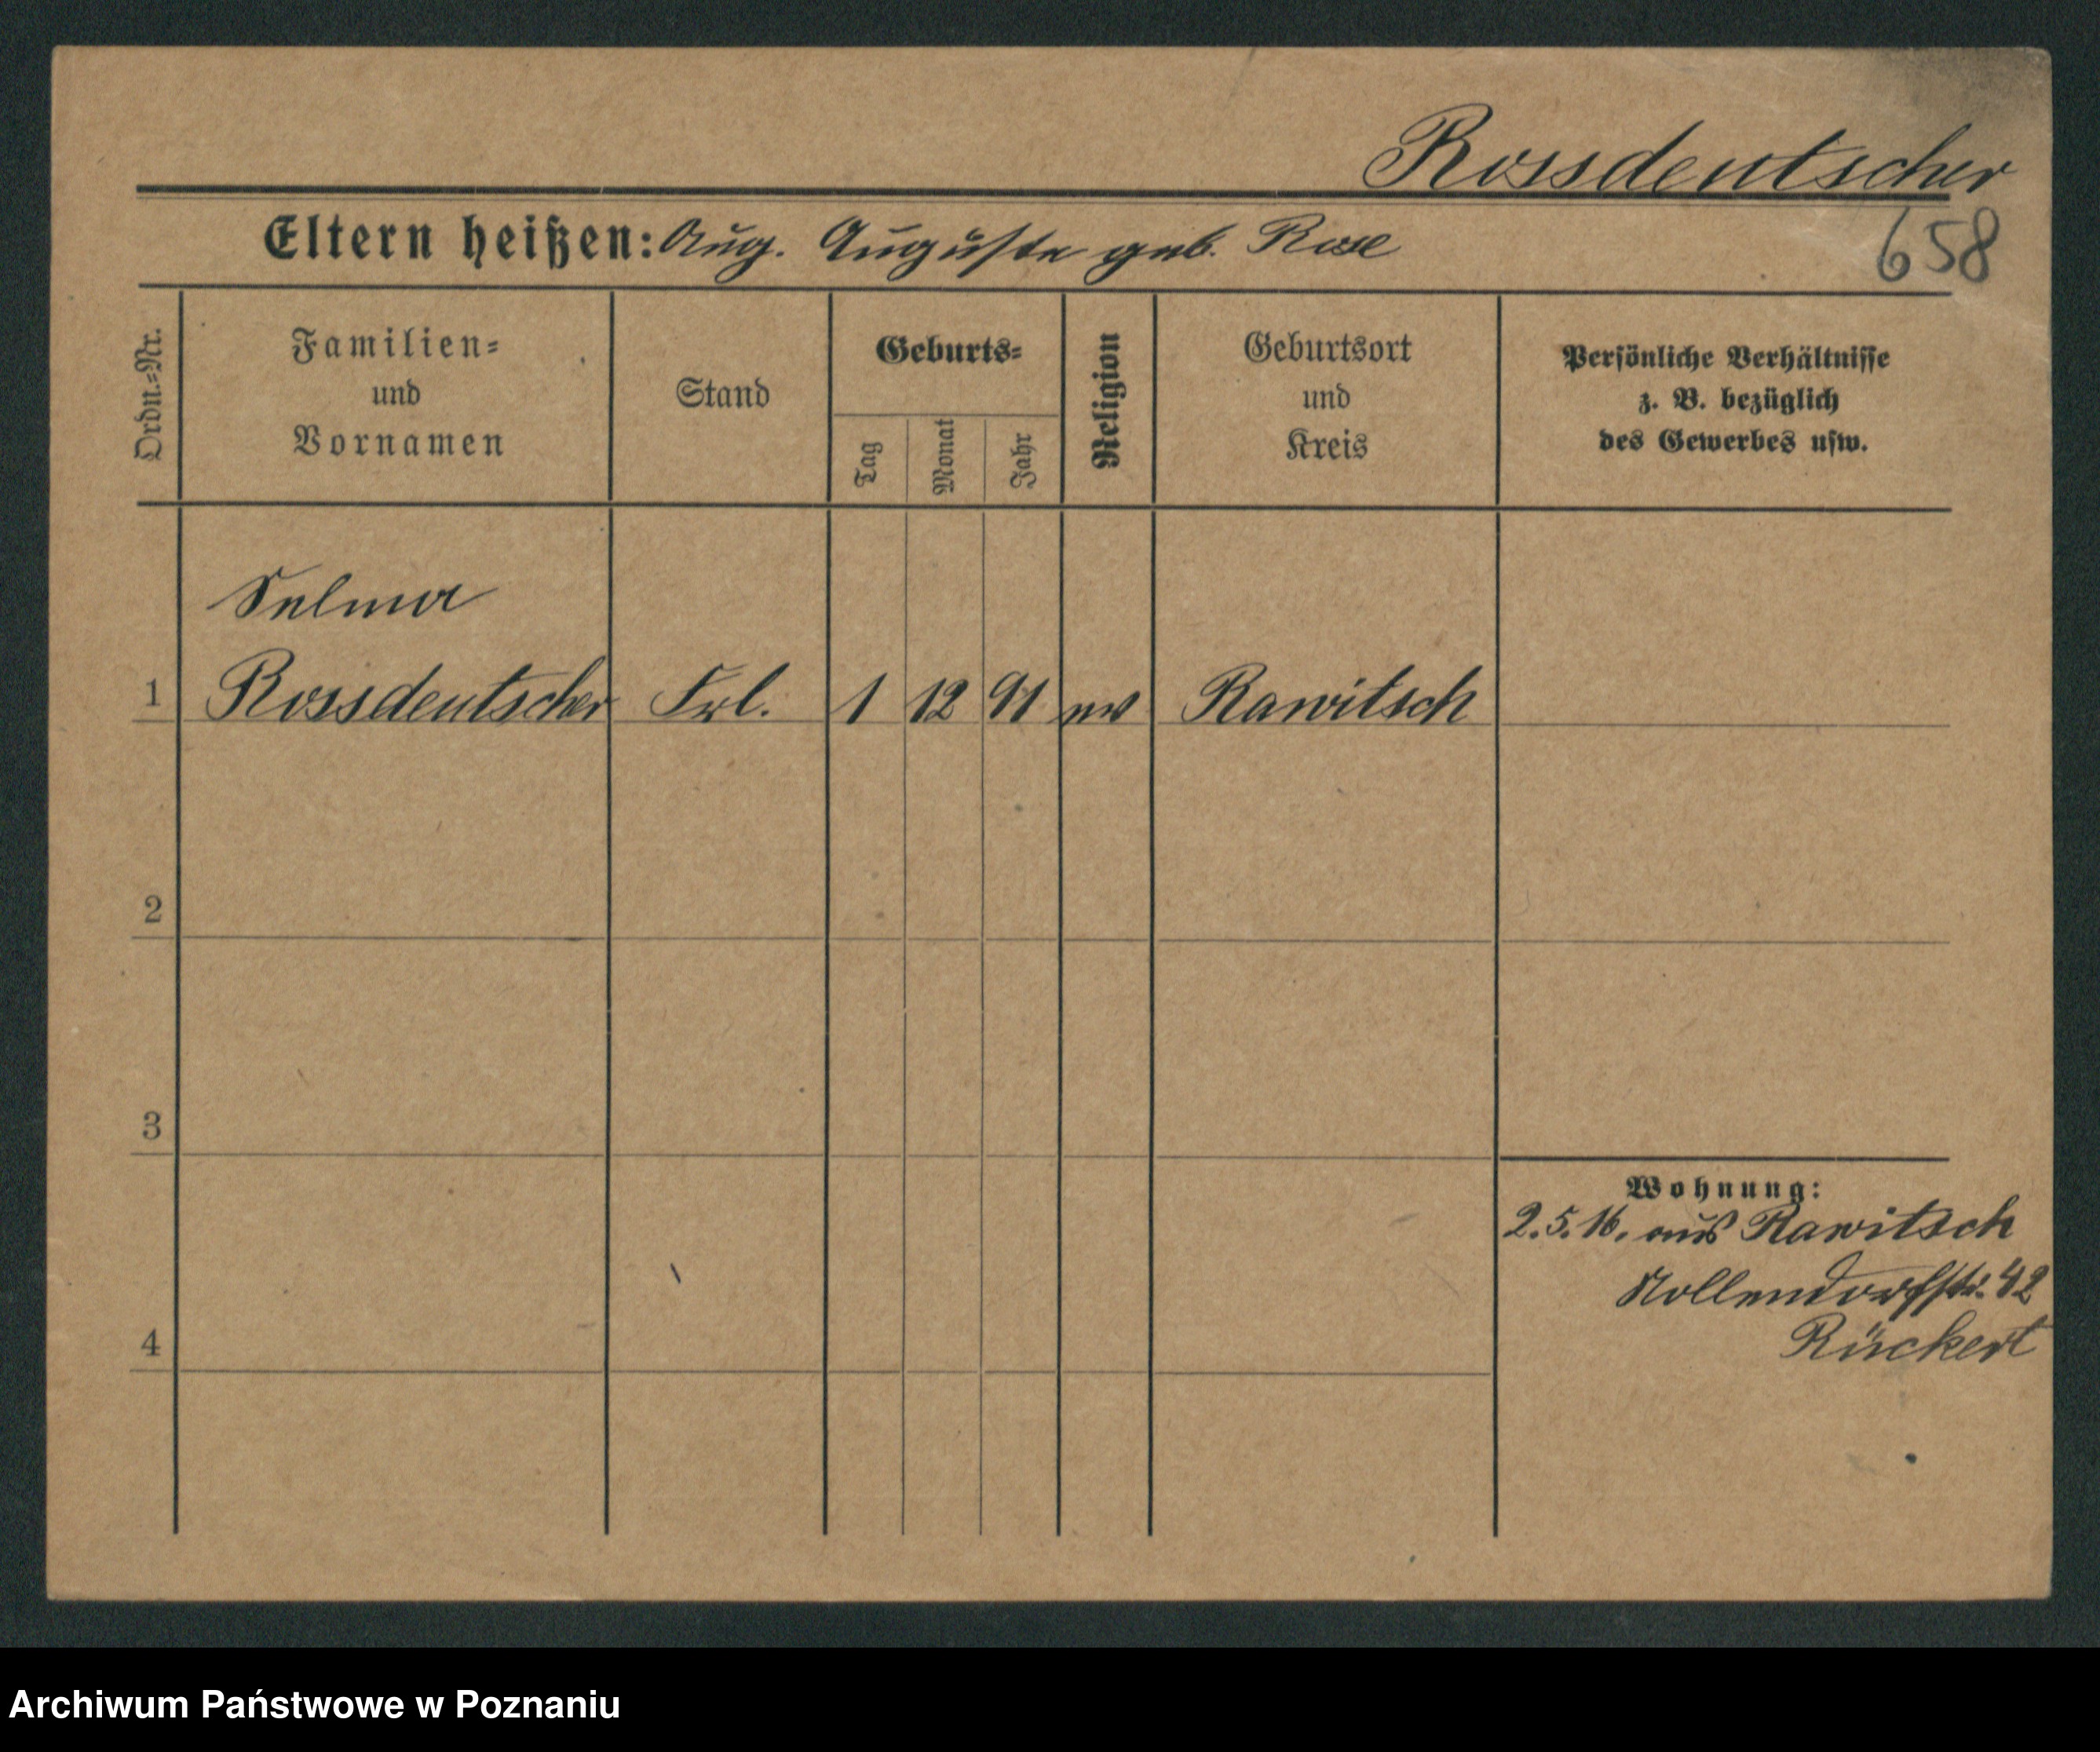 Rossdeutscher
658
Eltern heißen: Aug. Auguste geb. Rose
Ordn.-Nr.
Familien-
und
Vornamen
Stand
Geburts-
Tag
Monat
Jahr
Religion
Geburtsort
und
Kreis
Persönliche Verhältnisse
z. B. bezüglich
des Gewerbes usw.
Selma
1 Rossdeutscher Frl. 1 12 91 ev Rawitsch
2
3
4
Wohnung:
2.5.16. aus Rawitsch
Nollendorfstr. 42
Rückert
Archiwum Państwowe w Poznaniu